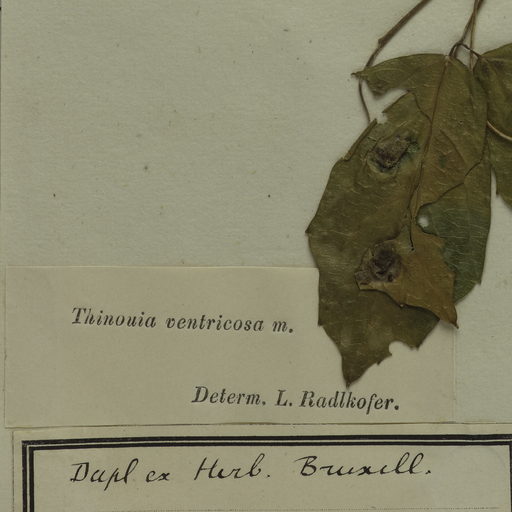 Thinouia ventricosa m.
Determ. L. Radlkofer.
Dupl ex Herb. Bruxell.